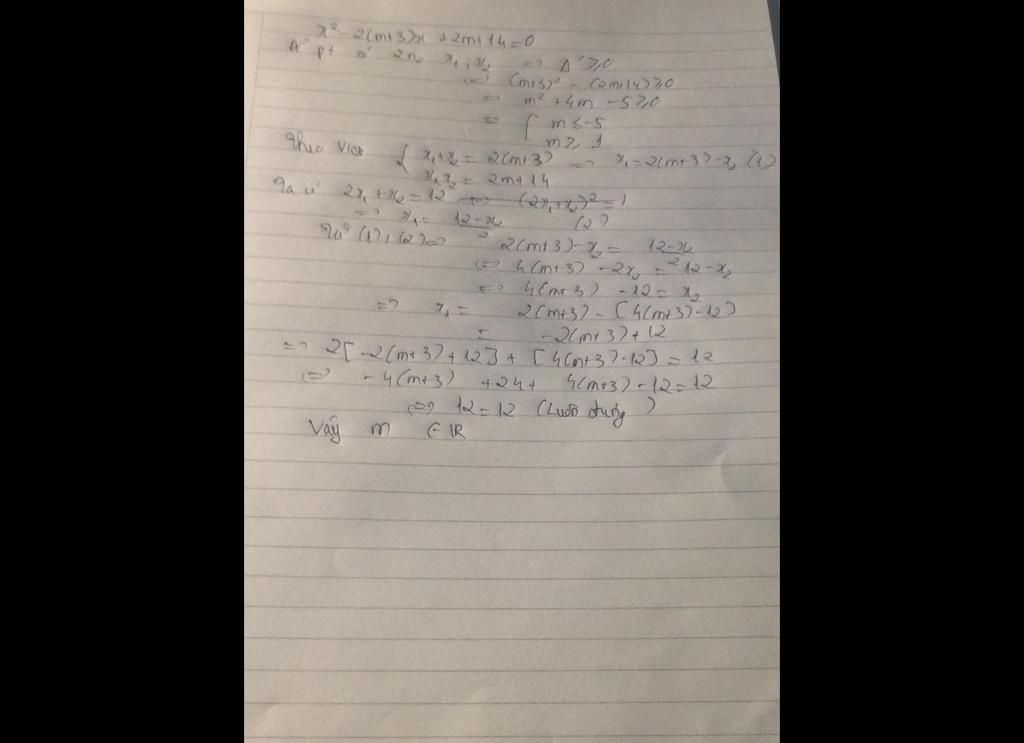 x² - 2(m+3)x + 2m+14=0
Để pt có 2n₀ x₁; x₂ => Δ' ≥ 0
<=> (m+3)² - (2m+14) ≥ 0
<=> m² + 4m - 5 ≥ 0
<=> [ m ≤ -5
m ≥ 1
Theo Viet { x₁+x₂ = 2(m+3) => x₁ = 2(m+3) - x₂ (1)
x₁x₂ = 2m+14
Ta có 2x₁ + x₂ = 12 <=> (2x₁+x₂)² =
=> x₁ = 12-x₂/2 (2)
Từ (1), (2) => 2(m+3) - x₂ = 12-x₂/2
<=> 4(m+3) - 2x₂ = 12-x₂
<=> 4(m+3) - 12 = x₂
=> x₁ = 2(m+3) - [4(m+3)-12]
= -2(m+3)+12
=> 2[-2(m+3)+12] + [4(m+3)-12] = 12
<=> -4(m+3) + 24 + 4(m+3) - 12 = 12
<=> 12 = 12 (Luôn đúng)
Vậy m ∈ R